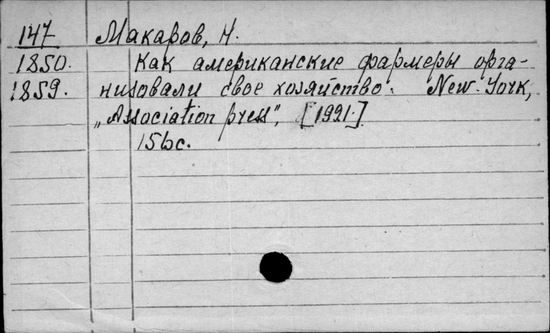 147 Макаров, Н.
1850. Как американские фармеры орга-
1859. низовали свое хозяйство. New-York,
„Association press", [1921.]
156 с.